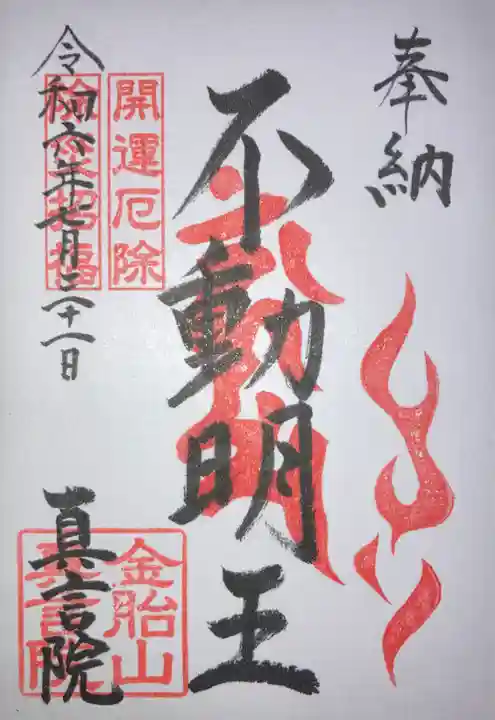 奉納
不動明王
開運厄除
招福
令和六年七月二十一日
金胎山
真言院
真言院